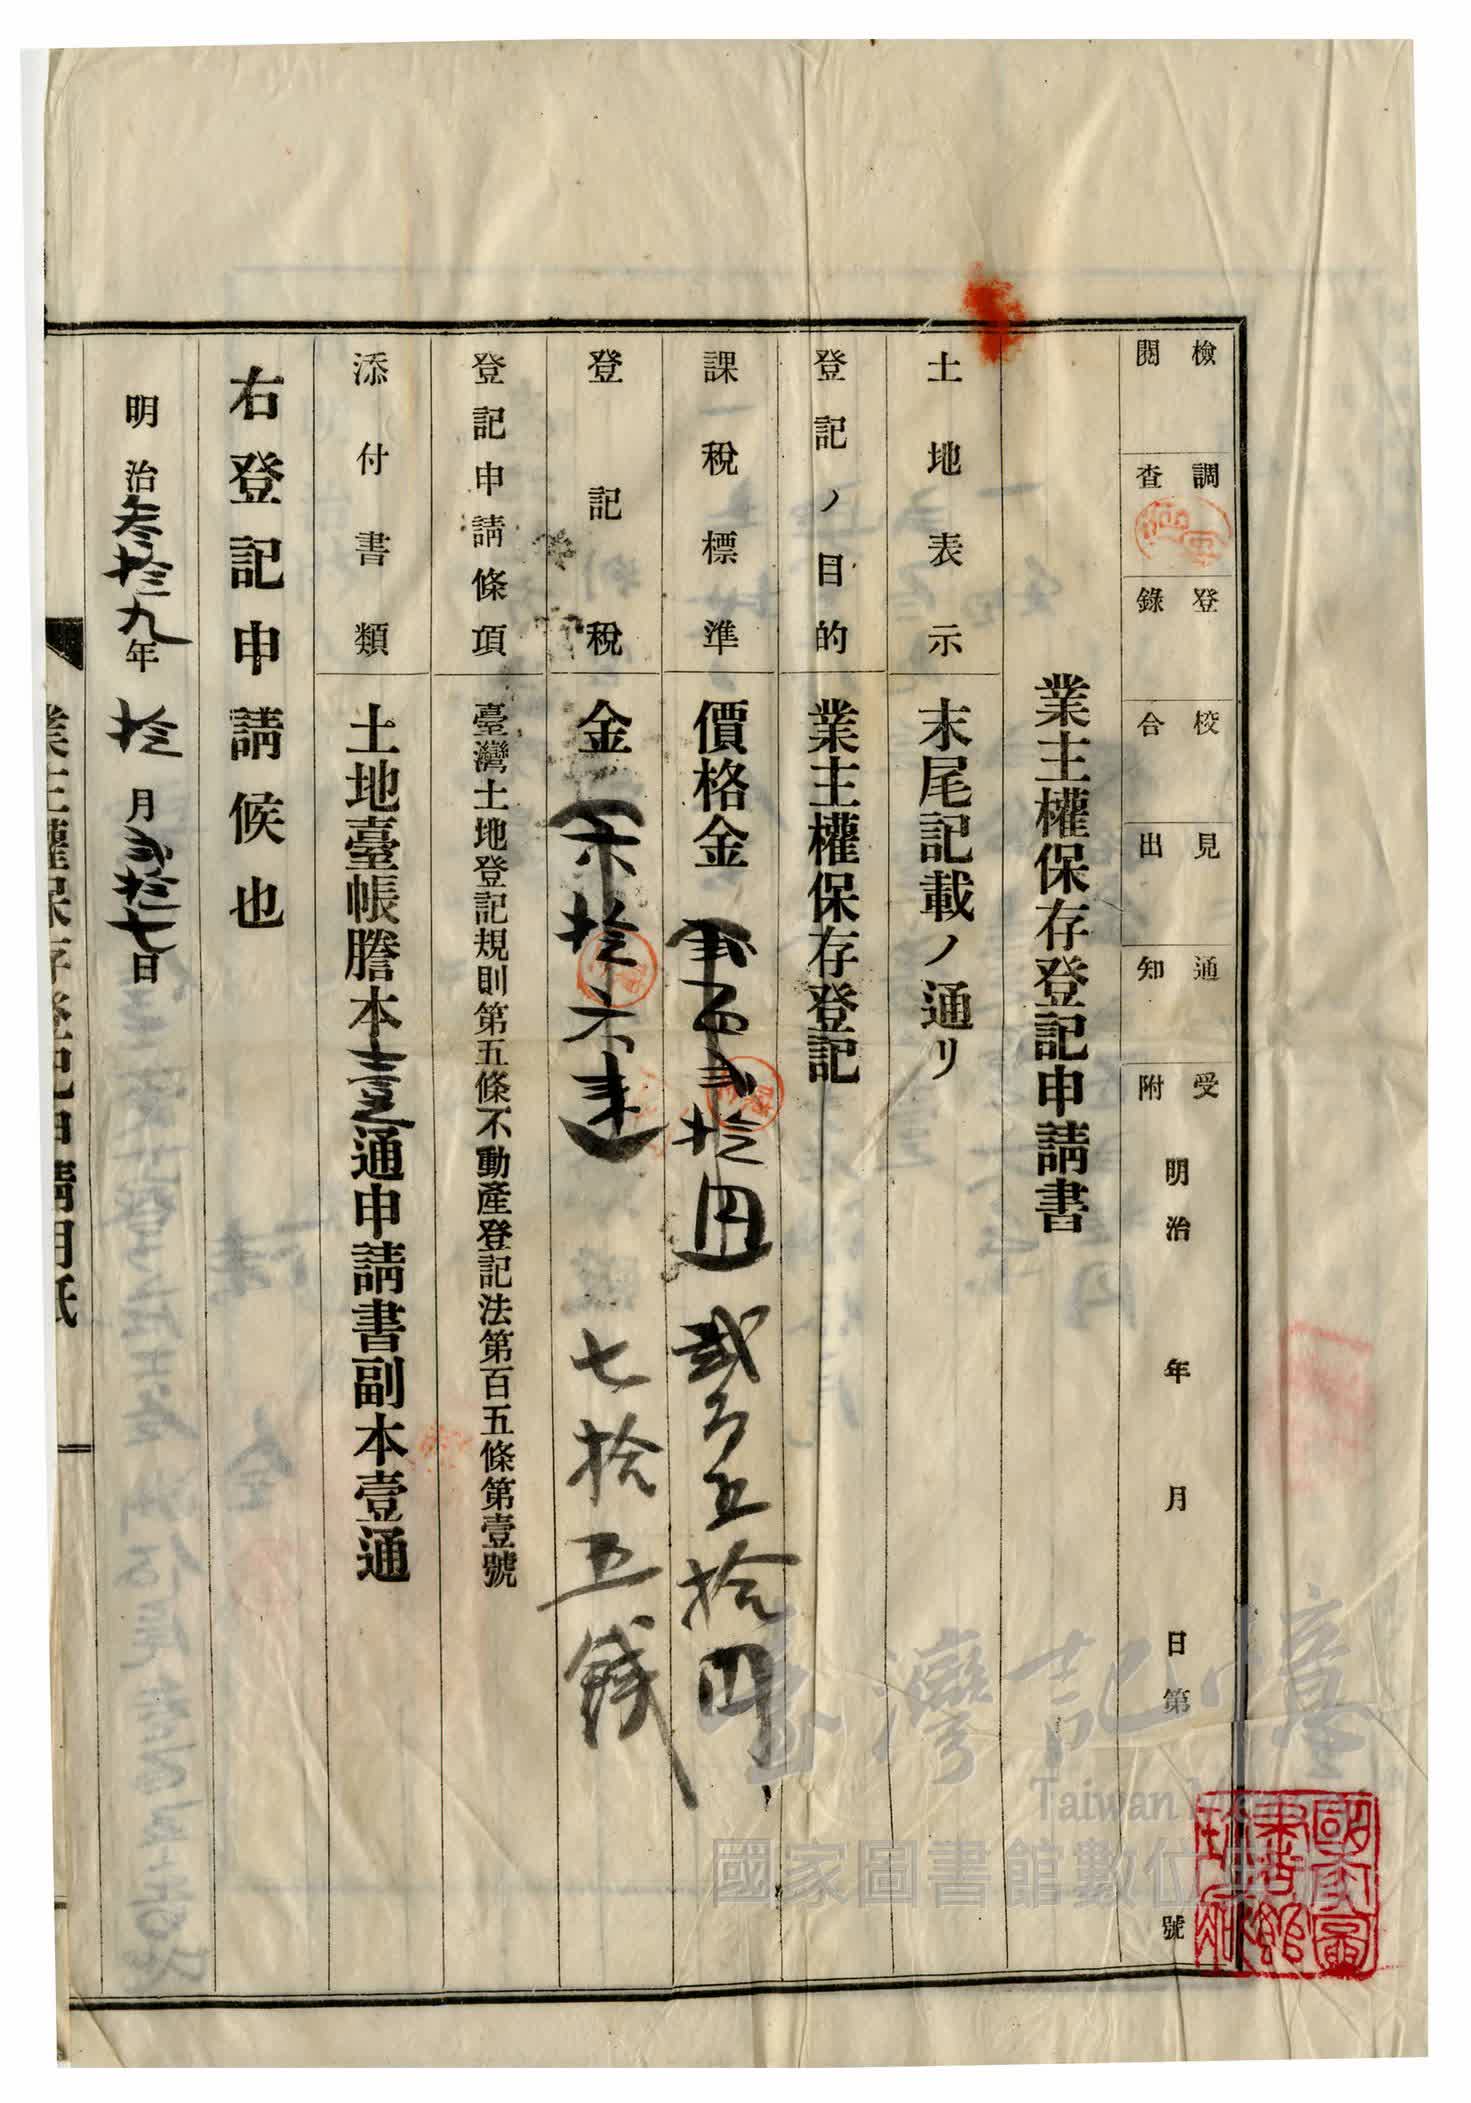 檢閲
調查
登錄
校合
見出
通知
受附 明治 年 月 日第 號
業主權保存登記申請書
土地表示 末尾記載ノ通リ
登記ノ目的 業主權保存登記
課稅標準 價格金 貳百貳拾圓 貳百五拾圓
登記稅 金 六拾六 七拾五錢
登記申請條項 臺灣土地登記規則第五條不動產登記法第百五條第壹號
添付書類 土地臺帳謄本壹通申請書副本壹通
右登記申請候也
明治參拾九年拾月貳拾七日
業主權保存登記申請用紙
臺灣記憶
Taiwan
國家圖書館數位典藏
國家圖書館